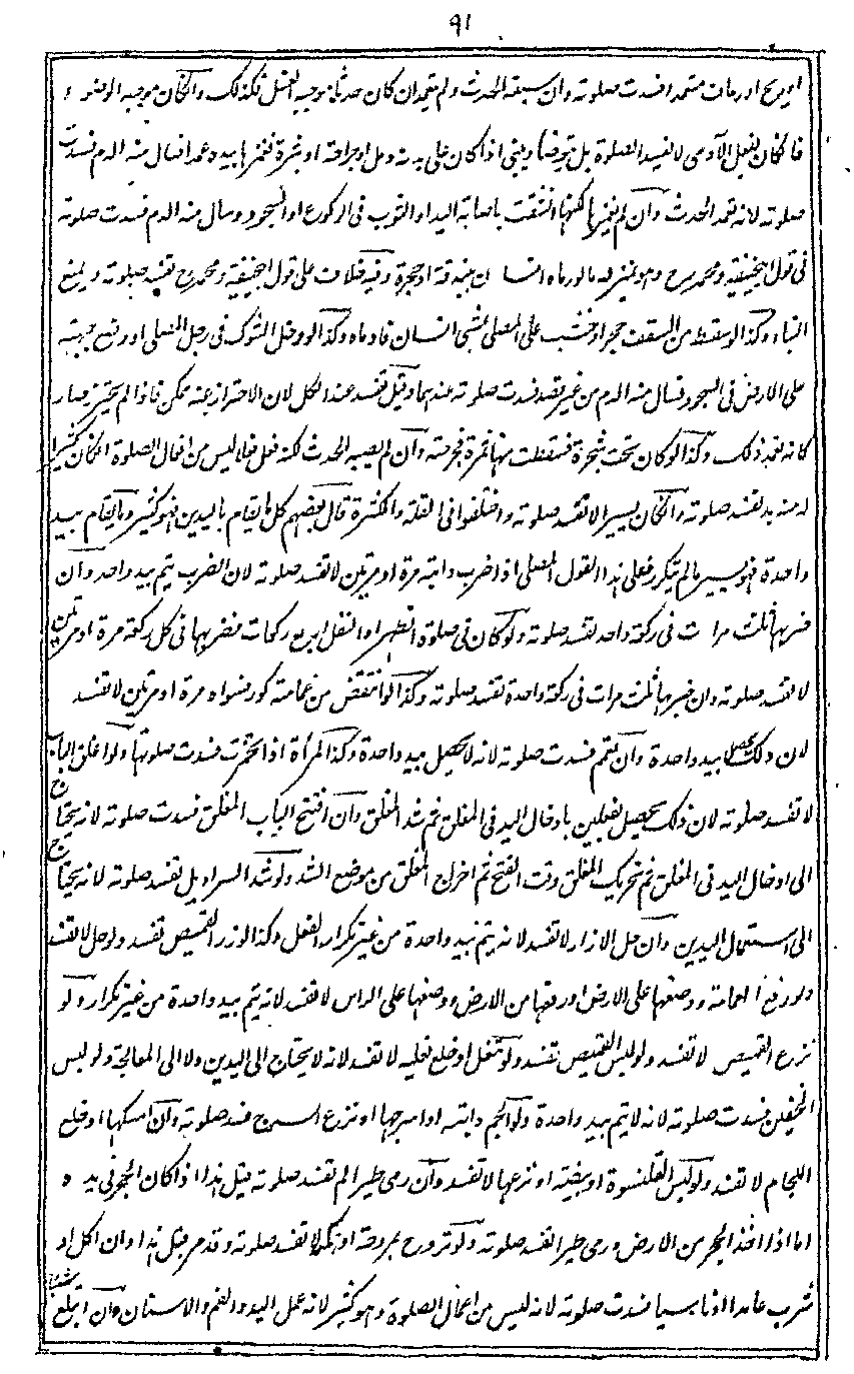 ٩١
او ريح او رعاف متعمدا فسدت صلوته وان سبقه الحدث ولم يتعمد ان كان حدثا موجبه الغسل فكذلك وان كان موجبه الوضوء و
فان كان بفعل الآدمى لا تفسد الصلوة بل يتوضأ ويبنى اذا كان على بدنه دمل او جراحة او بثرة فغمزها بيده عمدا فسال منه الدم فسدت
صلوته لانه تعمد الحدث وان لم يغمزها لكنها انشقت باصابة اليد او الثوب فى الركوع او السجود وسال منه الدم فسدت صلوته
فى قول ابيحنيفة ومحمد رح وهو بمنزلة مالو رماه انسان ببندقة او حجرة وفيه خلاف على قول ابيحنيفة ومحمد رح تفسد صلوته ويمنع
البناء وكذا لو سقط من السقف حجر او خشب على المصلى بمشى انسان فادماه وكذا لو دخل الشوك فى رجل المصلى او وضع جبهته
على الارض فى السجود فسال منه الدم من غير قصد فسدت صلوته عندهما وقيل تفسد عند الكل لان الاحتراز عنه ممكن فاذا لم يحترز صار
كانه تعمد ذلك وكذا لو كان تحت شجرة فسقطت منها ثمرة فجرحته وان لم يصبه الحدث لكنه فعل فعلا ليس من افعال الصلوة ان كان كثيرا
له منه بد تفسد صلوته وان كان يسيرا لا تفسد صلوته واختلفوا فى القلة والكثرة قال بعضهم كل ما يقام باليدين فهو كثير وما يقام بيد
واحدة فهو يسير مالم يتكرر فعلى هذا القول المصلى اذا ضرب دابته مرة او مرتين لا تفسد صلوته لان الضرب يتم بيد واحد وان
ضربها ثلث مرات فى ركعة واحد تفسد صلوته ولو كان فى صلوة الظهر او النفل اربع ركعات فضربها فى كل ركعة مرة او مرتين
لا تفسد صلوته وان ضربها ثلث مرات فى ركعة واحدة تفسد صلوته وكذا لو انتقض من عمامته كور فسواه مرة او مرتين لا تفسد
لان ذلك يحصل بيد واحدة وان تعمم فسدت صلوته لانه لا يحصل بيد واحدة وكذا المرأة اذا تخمرت فسدت صلوتها ولو اغلق الباب
لا تفسد صلوته لان ذلك يحصل بفعلين بادخال اليد فى المغلق ثم شد المغلق وان افتتح الباب المغلق فسدت صلوته لانه يحتاج
الى ادخال اليد فى المغلق ثم تحريك المغلق وقت الفتح ثم اخراج المغلق من موضع الشد ولو شد السراويل تفسد صلوته لانه يحتاج
الى استعمال اليدين وان حل الازار لا تفسد لانه يتم بيد واحدة من غير تكرار الفعل وكذا لو زر القميص تفسد ولو حل لا تفسد
ولو رفع العمامة ووضعها على الارض او رفعها من الارض ووضعها على الراس لا تفسد لانه يتم بيد واحدة من غير تكرار ولو
نزع القميص لا تفسد ولو لبس القميص تفسد ولو تنعل او خلع نعليه لا تفسد لانه لا يحتاج الى اليدين ولا الى المعالجة ولو لبس
الخفين فسدت صلوته لانه لا يتم بيد واحدة ولو الجم دابته او اسرجها او نزع السرج فسد صلوته وان امسكها او خلع
اللجام لا تفسد ولو لبس القلنسوة او بيضة او نزعها لا تفسد وان رمى طيرا لم تفسد صلوته قيل هذا اذا كان الحجر فى يده
اما اذا اخذ الحجر من الارض ورمى طيرا تفسد صلوته ولو تروح بمروحة او بكمه لا تفسد صلوته وقد مر قبل هذا وان اكل او
شرب عامدا او ناسيا فسدت صلوته لانه ليس من اعمال الصلوة وهو كثير لانه عمل اليد والفم والاسنان وان ابتلع